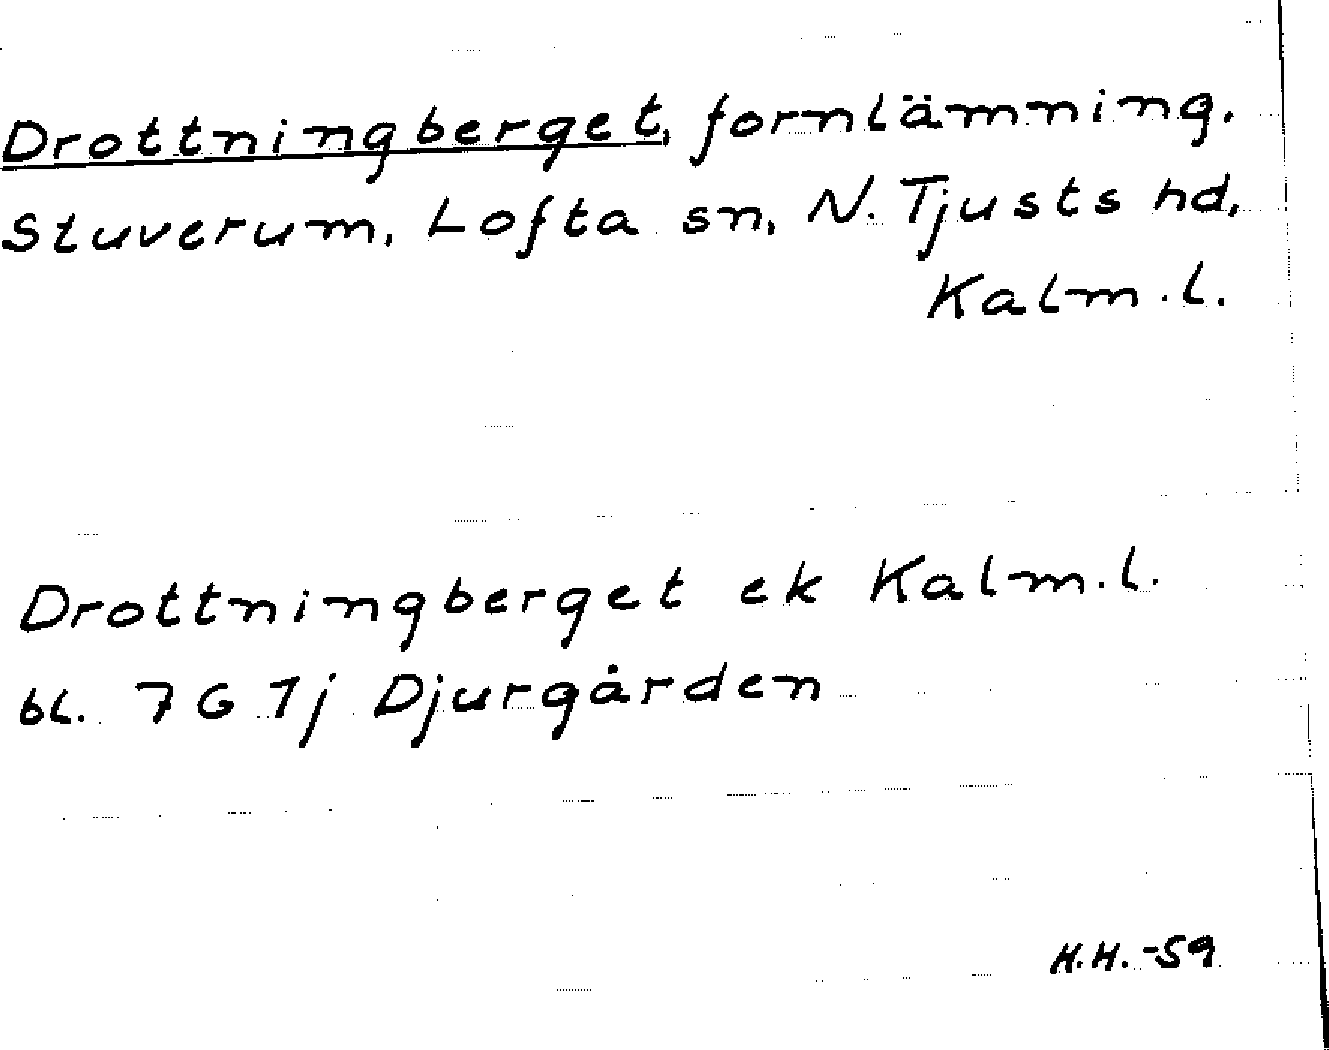 Drottningberget, fornlämning.
Stuverum, Lofta sn, N. Tjusts hd,
Kalm.l.
Drottningberget ek Kalm.l.
bl. 7 G 1j Djurgården
H.H. -59